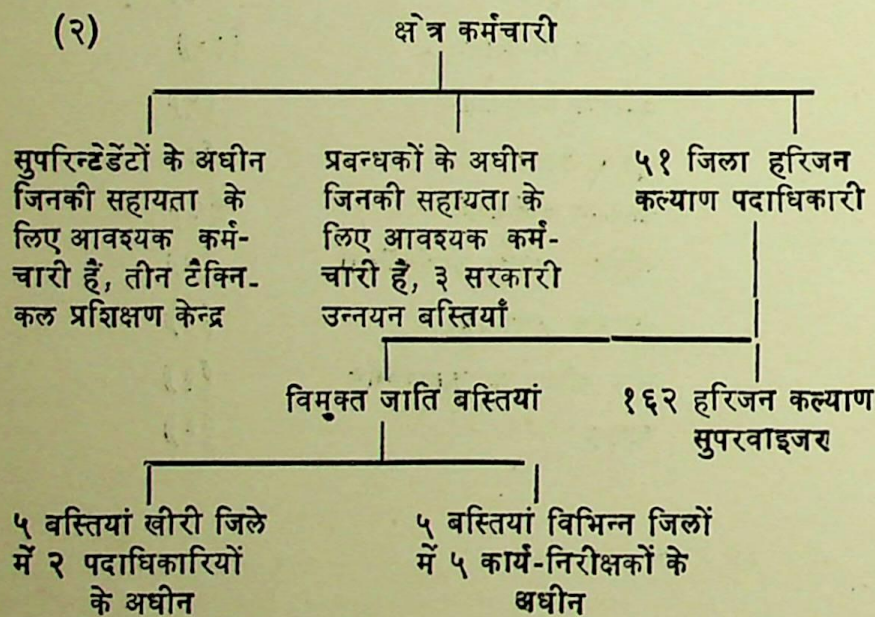 (२)
क्षेत्र कर्मचारी
सुपरिन्टेडेंटों के अधीन
जिनकी सहायता के
लिए आवश्यक कर्म-
चारी हैं, तीन टैक्नि-
कल प्रशिक्षण केन्द्र
प्रबन्धकों के अधीन
जिनकी सहायता के
लिए आवश्यक कर्म-
चारी हैं, ३ सरकारी
उन्नयन बस्तियाँ
५१ जिला हरिजन
कल्याण पदाधिकारी
विमुक्त जाति बस्तियां
१६२ हरिजन कल्याण
सुपरवाइजर
५ बस्तियां खीरी जिले
में २ पदाधिकारियों
के अधीन
५ बस्तियां विभिन्न जिलों
में ५ कार्य-निरीक्षकों के
अधीन